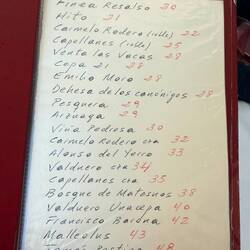 Finca Resalso 20
Hito 21
Carmelo Rodero (roble) 22
Capellanes (roble) 25
Venta las Vacas 28
Cepa 21 28
Emilio Moro 28
Dehesa de los canónigos 28
Pesquera 29
Arzuaga 29
Viña Pedrosa 30
Carmelo Rodero cra 32
Alonso del Yerro 33
Valduero cra 34
Capellanes cra 35
Bosque de Matasnos 38
Valduero Unacepa 40
Francisco Barona 42
Malleolus 43
Tomás Postigo 48